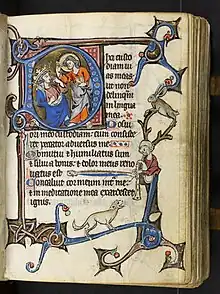 Dixi custo
diam ui
as meas
ut non
delinquā
in lingua
mea.
Posui
ori meo custodiam: cum consiste
ret peccator aduersus me
Obmutui et humiliatus sum
et silui a bonis: et dolor meus reno
uatus est
Concaluit cor meum intra me:
et in meditatione mea exardescet
ignis.